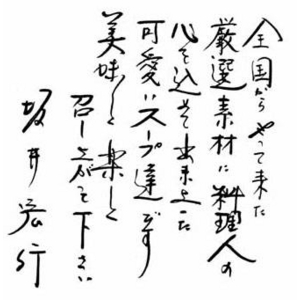 全国からやって来た
厳選素材に料理人の
心を込めて出来上った
可愛いスープ達です
美味しく楽しく
召し上がって下さい
坂井宏行